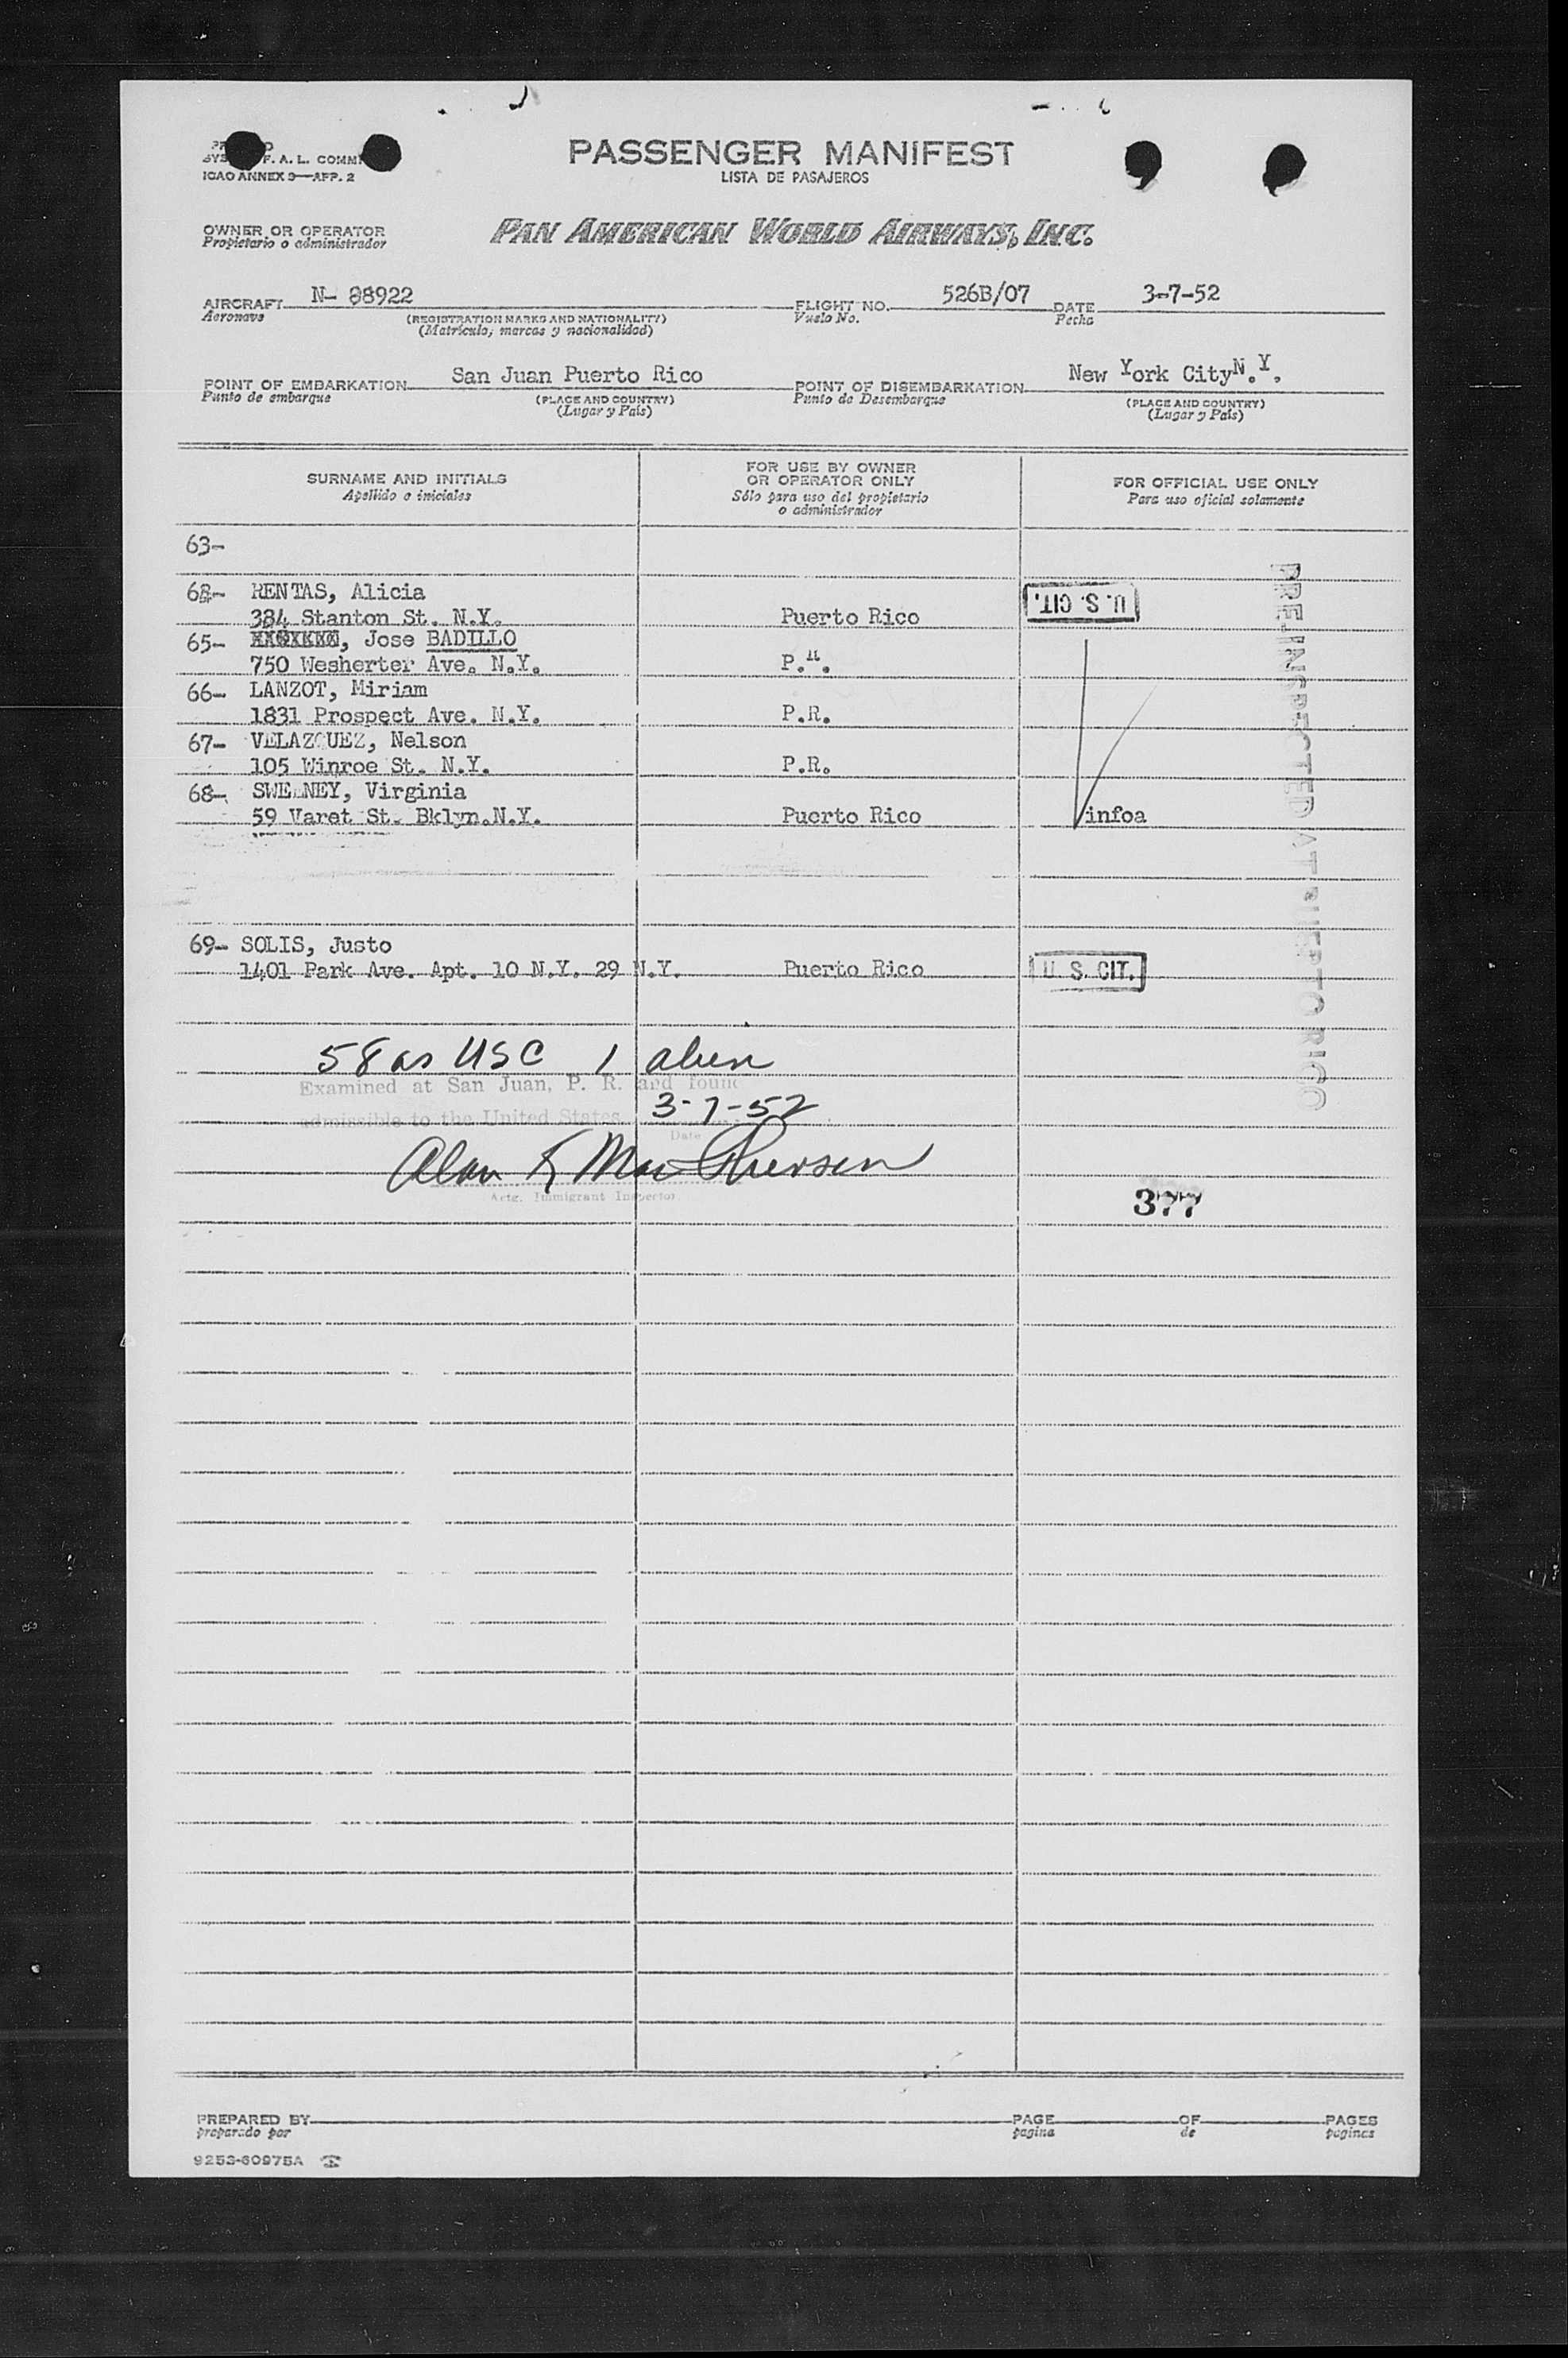 PASSENGER MANIFEST
LISTA DE PASAJEROS
F. A. L. COMM
ICAO ANNEX 9—APP. 2
OWNER OR OPERATOR
Propietario o administrador
PAN AMERICAN WORLD AIRWAYS, INC.
AIRCRAFT N- 88922 FLIGHT NO. 526B/07 DATE 3-7-52
Aeronave (REGISTRATION MARKS AND NATIONALITY) Vuelo No. Fecha
(Matrícula, marcas y nacionalidad)
POINT OF EMBARKATION San Juan Puerto Rico POINT OF DISEMBARKATION New York City N.Y.
Punto de embarque (PLACE AND COUNTRY) Punto de Desembarque (PLACE AND COUNTRY)
(Lugar y País) (Lugar y País)
SURNAME AND INITIALS
Apellido e iniciales
FOR USE BY OWNER
OR OPERATOR ONLY
Sólo para uso del propietario
o administrador
FOR OFFICIAL USE ONLY
Para uso oficial solamente
63-
68- RENTAS, Alicia
384 Stanton St. N.Y. Puerto Rico U. S. CIT.
65- , Jose BADILLO
750 Wesherter Ave. N.Y. P. .
66- LANZOT, Miriam
1831 Prospect Ave. N.Y. P.R.
67- VELAZQUEZ, Nelson
105 Winroe St. N.Y. P.R.
68- SWEENEY, Virginia
59 Varet St. Bklyn.N.Y. Puerto Rico infoa
69- SOLIS, Justo
1401 Park Ave. Apt. 10 N.Y. 29 N.Y. Puerto Rico U. S. CIT.
PRE-INSPECTED AT PUERTO RICO
58 as USC 1 alien
Examined at San Juan, P. R. and found
admissible to the United States 3-7-52
Date
Alan K MacPherson
Actg. Immigrant Inspector
377
PREPARED BY PAGE OF PAGES
preparado por pagina de paginas
9253-60975A